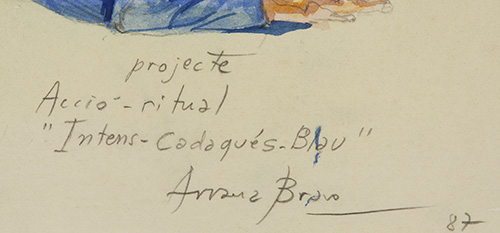 projecte
Acció-ritual
"Intens-Cadaqués-Blau"
Arranz Bravo
87